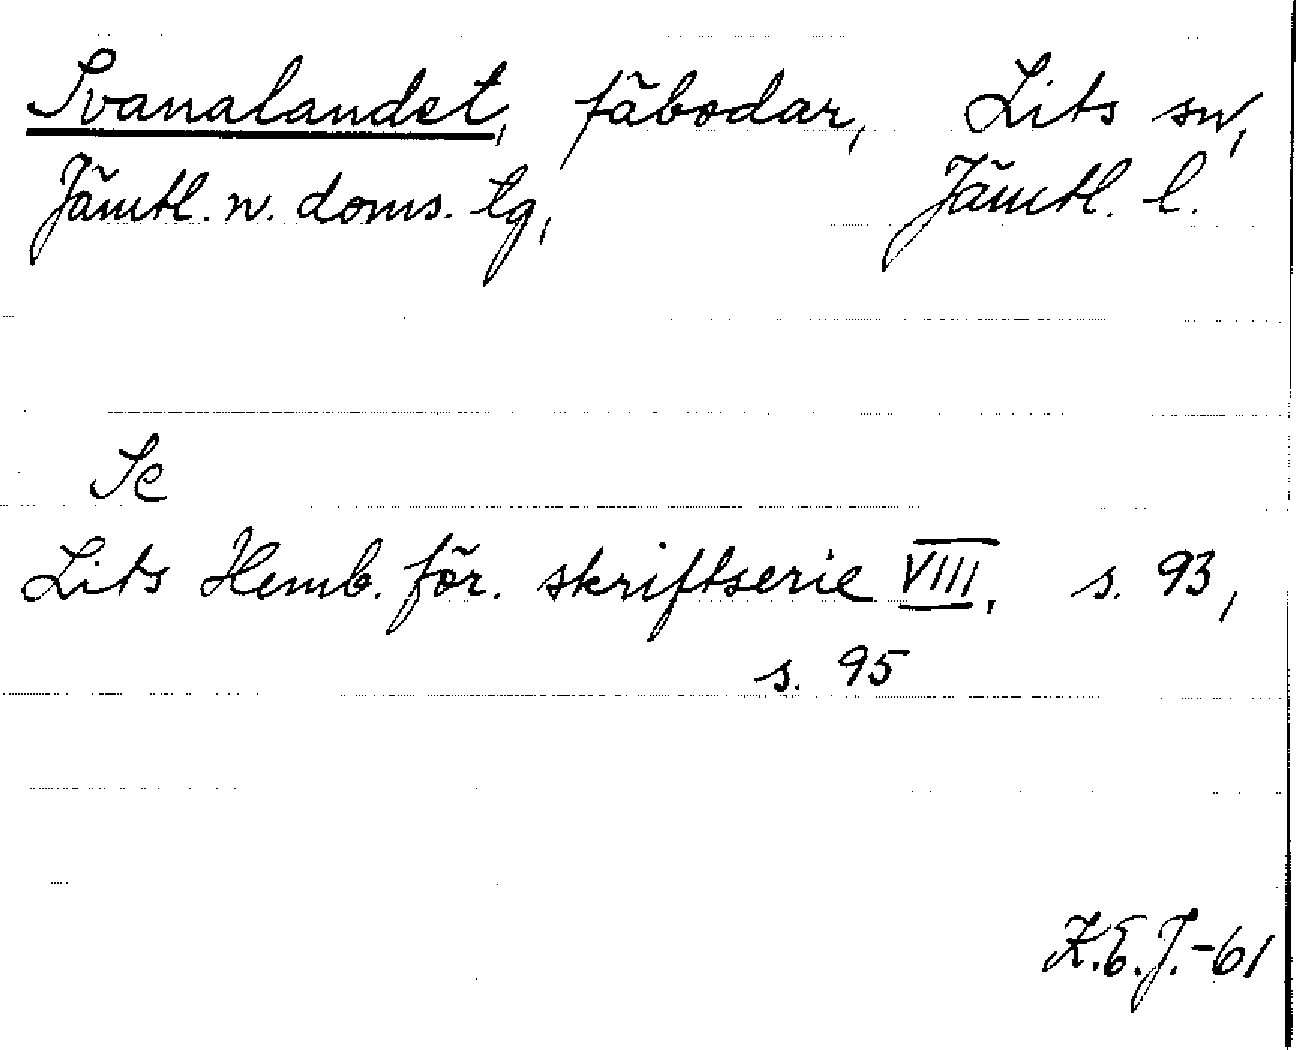 Svanalandet, fäbodar, Lits sn,
Jämtl. n. doms. tg, Jämtl. l.
Se
Lits Hemb. för. skriftserie VIII, s. 93,
s. 95
K.E.J.-61